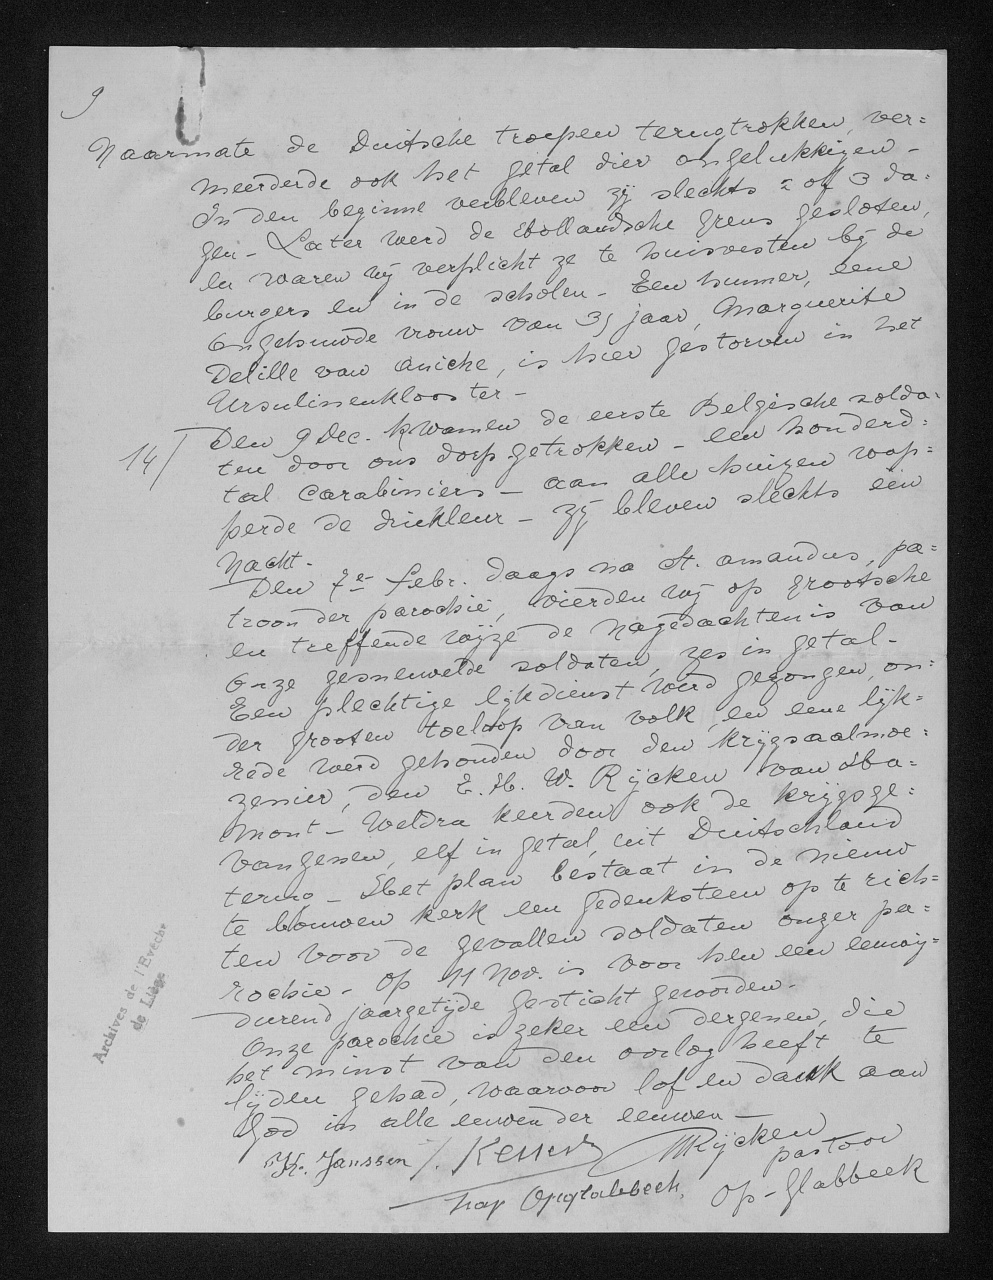 9
Naarmate de Duitsche troepen terugtrokken, ver=
meerderde ook het getal dier ongelukkigen -
In den beginne verbleven zij slechts 2 of 3 da=
gen - Later werd de Hollandsche grens gesloten,
en waren wij verplicht ze te huisvesten bij de
burgers en in de scholen - Een hunner, eene
ongehuwde vrouw van 31 jaar, Marguerite
Delille van Aniche, is hier gestorven in het
Ursulinenklooster -
14/ Den 9 Dec. kwamen de eerste Belgische solda=
ten door ons dorp getrokken - een honderd=
tal Carabiniers - aan alle huizen wap=
perde de driekleur - zij bleven slechts één
nacht.
Den 7en Febr. daags na St. Amandus, pa=
troon der parochie, vierden wij op grootsche
en treffende wijze de nagedachtenis van
onze gesneuvelde soldaten, zes in getal -
Een plechtige lijkdienst werd gezongen, on=
der grooten toeloop van volk en eene lijk=
rede werd gehouden door den krijgsaalmoe=
zenier, den E. H. W. Rijcken van Ha=
mont - Weldra keerden ook de krijgsge=
vangenen, elf in getal, uit Duitschland
terug - Het plan bestaat in de nieuw
te bouwen kerk een gedenksteen op te rich=
ten voor de gevallen soldaten onzer pa=
rochie - op 11 Nov. is voor hen een eeuwig=
durend jaargetijde gesticht geworden -
Onze parochie is zeker een dergenen, die
het minst van den oorlog heeft te
lijden gehad, waarvoor lof en dank aan
God in alle eeuwen der eeuwen -
K. Janssen J. MRijcken
pastoor
kap Opglabbeek, Op-Glabbeek
Archives de l'Evêché
de Liège